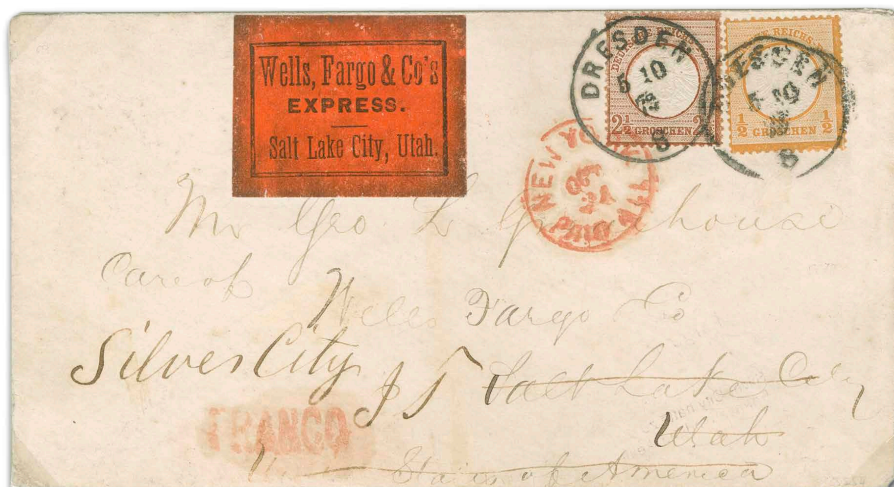 Wells, Fargo & Co's
EXPRESS.
Salt Lake City, Utah.
DRESDEN
5 10
8
DEUTSCHE REICHS-
2½ GROSCHEN 2
DRESDEN
10
8
REICHS-
½ GROSCHEN ½
NEW YO
OCT
21
PAID ALL
Mr Geo L Greenhouse
Care of
Wells Fargo Co
Silver City I T Salt Lake City
Utah
FRANCO
States of America